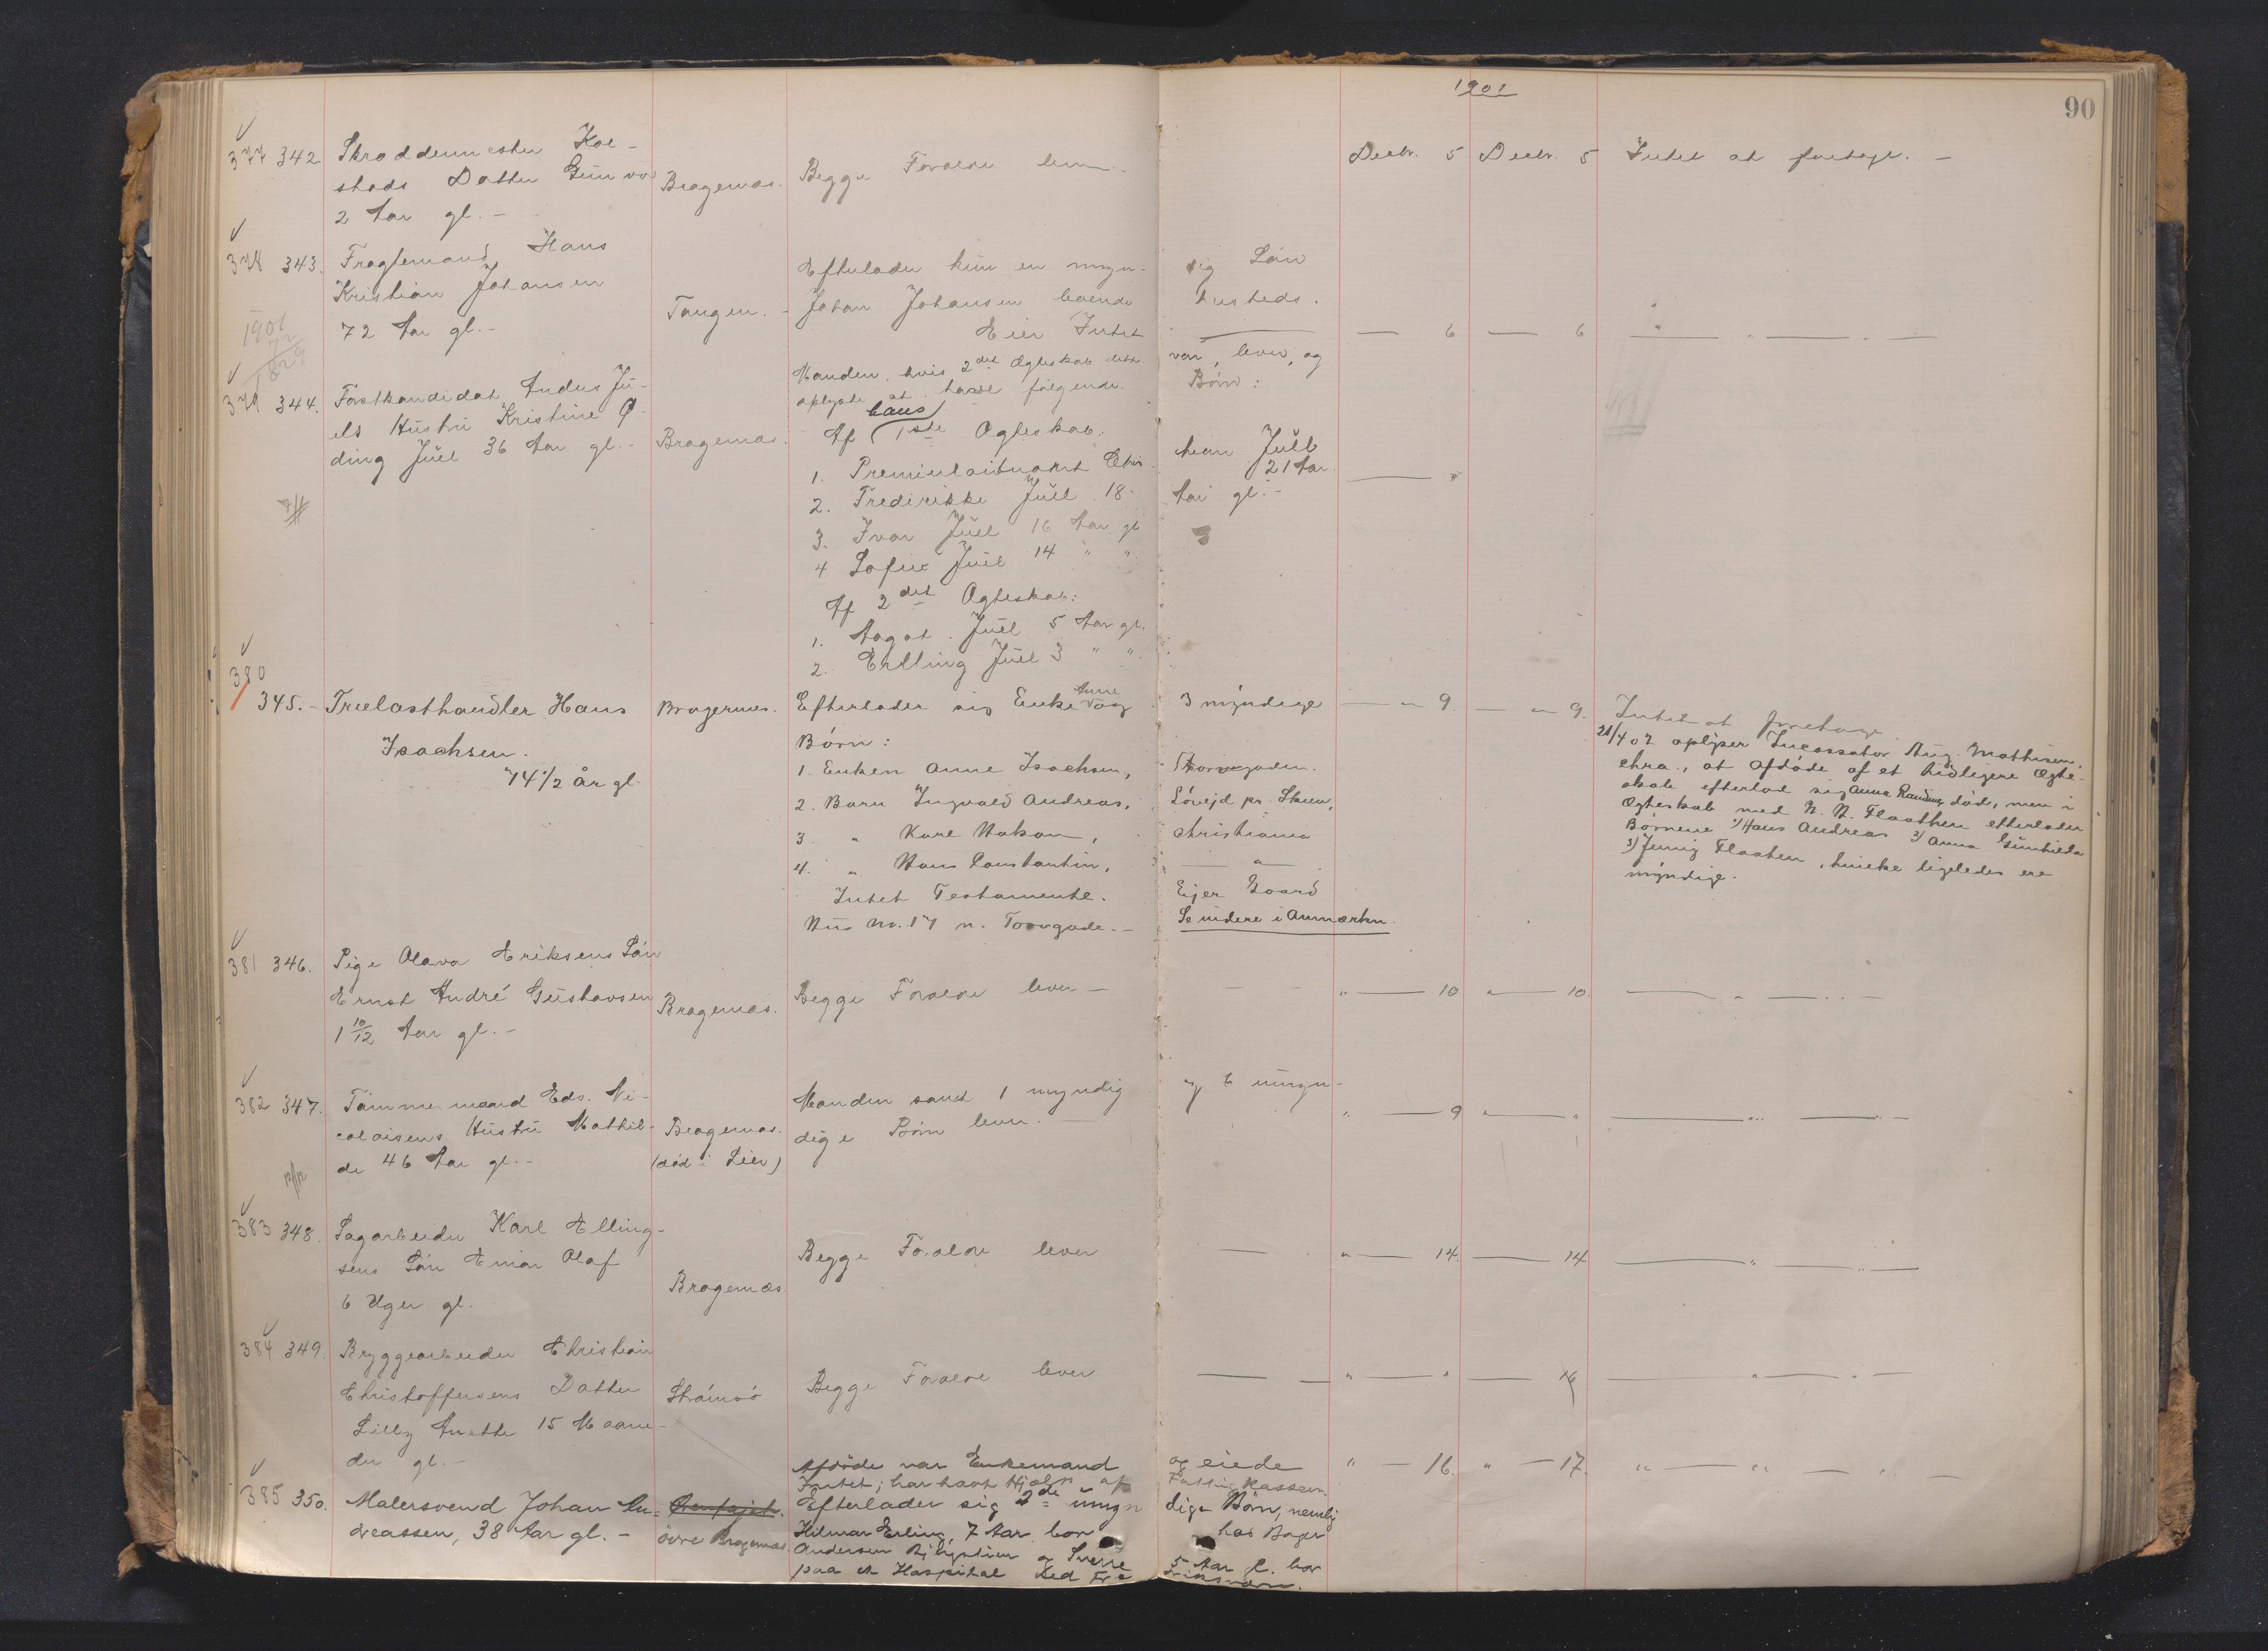 1901
90
377 342 Skræddermester Kol-
stads Datter Gunvor Bragernæs. Begge Forældre lever. Decbr. 5 Decbr. 5 Intet at foretage. -
2 Aar gl. -
378 343. Fragtemand Hans
Kristian Johansen
72 Aar gl. -
Tangen.
Efterlader kun en myn- dig Sön
Johan Johansen boende husteds.
Eier Intet
6 6
1901
1829
379 344. Forstkandidat Anders Ju-
els Hustru Kristine Ø-
ding Juel 36 Aar gl. - Bragernæs.
Manden, hvis 2det Ægteskab dette var, lever, og
oplyste at have følgende Börn:
hans
Af 1ste Ægteskab:
1. Premierløitnant Chri- stian Juell
21 Aar.
2. Fredrikke Juel 18 Aar gl. -
3. Ivar Juel 16 Aar gl
4 Sofie Juel 14 " "
Af 2det Ægteskab:
1. Aagot Juel 5 Aar gl.
2. Erlling Juel 3 " "
380
345. - Trælasthandler Hans
Isachsen.
74 1/2 År gl.
Bragernes.
Efterlader sig Enke Anne og 3 myndige
Börn:
1. Enken Anne Isachsen, Torvegaden.
2. Barn Ingvald Andreas, Lövejd pr. Skien,
3. " Karl Hakon, Christiania
4. " Hans Constantin, — " —
Intet Testamente. Ejer Gaard
Hus No. 17 n. Torvgade. - Se videre i Anmærkn.
— " 9. — " 9. Intet at foretage.
21/4 07 oplyser Incassator Aug. Mathisen,
Chra., at afdöde af et tidligere Ægte-
skab efterlod sig Anna Randine, död, men i
Ægteskab med N. N. Flaathen efterlader
Börnene 1) Hans Andreas 2) Anna Gunhilda
3) Jenny Flaaten, hvilke ligeledes ere
myndige.
381 346. Pige Olava Eriksens Sön
Ernst André Gustavsen Bragernæs. Begge Forældre lever - " — 10 " — 10.
1 10/12 Aar gl. -
382 347. Tömmermand Edv. Ni-
colaisens Hustru Mathil-
de 46 Aar gl. -
Bragernæs.
(död i Lier)
Manden samt 1 myndig og 6 umyn-
dige Börn lever.
" — 9 " — "
12/12
383 348. Sagarbeider Karl Elling-
sens Sön Einar Olaf
6 Uger gl.
Bragernæs.
Begge Forældre lever " — 14. — 14
384 349. Bryggearbeider Christian
Christoffersens Datter
Lilly Anette 15 Maane-
der gl. -
Strömsö
Begge Forældre lever — " — " — 16
385 350. Malersvend Johan An-
dreassen, 38 Aar gl. -
övre Bragernæs.
Afdöde var Enkemand og eiede
Intet; har havt Hjælp af Fattigkassen.
Efterlader sig 2de umyn dige Börn, nemlig
Hilmar Erling, 7 Aar bor hos Bager
Andersen og Sverre 5 Aar gl. bor
paa et Hospital ved Fre driksværn.
" — 16. " — 17. " — " — " —